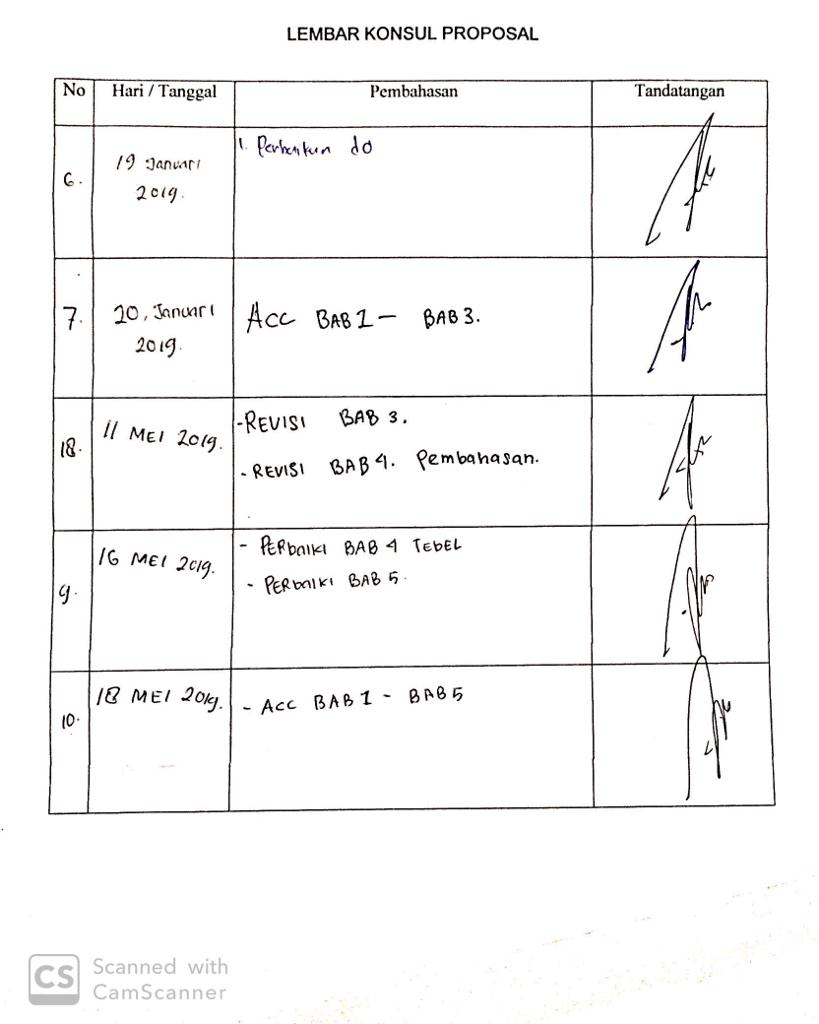 LEMBAR KONSUL PROPOSAL
No Hari / Tanggal Pembahasan Tandatangan
6. 19 Januari 2019. 1. Perbaikan do
7. 20, Januari 2019. Acc BAB 1 - BAB 3.
18. 11 MEI 2019. - REVISI BAB 3.
- REVISI BAB 4. Pembahasan.
9. 16 MEI 2019. - PERbaiki BAB 4 TEBEL
- PERbaiki BAB 5.
10. 18 MEI 2019. - Acc BAB 1 - BAB 5
CS Scanned with
CamScanner